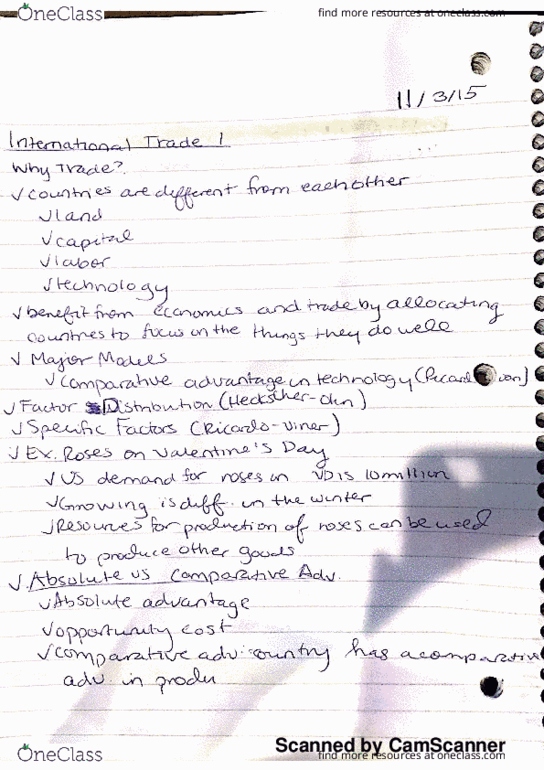 OneClass
find more resources at oneclass.com
11/3/15
International Trade 1
Why Trade?
✓countries are different from each other
✓land
✓capital
✓labor
✓technology
✓benefit from economics and trade by allocating
countries to focus on the things they do well
✓ Major Models
✓comparative advantage in technology (Ricard
✓Factor Distribution (Hecksher-Olin)
✓Specific Factors (Ricardo-Viner)
✓Ex. Roses on Valentine's Day
✓US demand for roses on VD is 10 million
✓Growing is diff. in the winter
✓Resources for production of roses can be used
to produce other goods
✓Absolute vs Comparative Adv.
✓Absolute advantage
✓opportunity cost
✓comparative adv: country has a comparativ
adv in produ
Scanned by CamScanner
OneClass
find more resources at oneclass.com